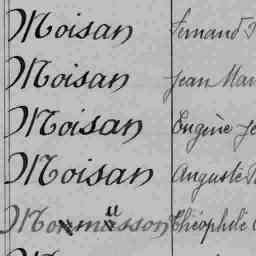 Moisan Fernand
Moisan Jean Mar
Moisan Eugène Je
Moisan Auguste
Théophile